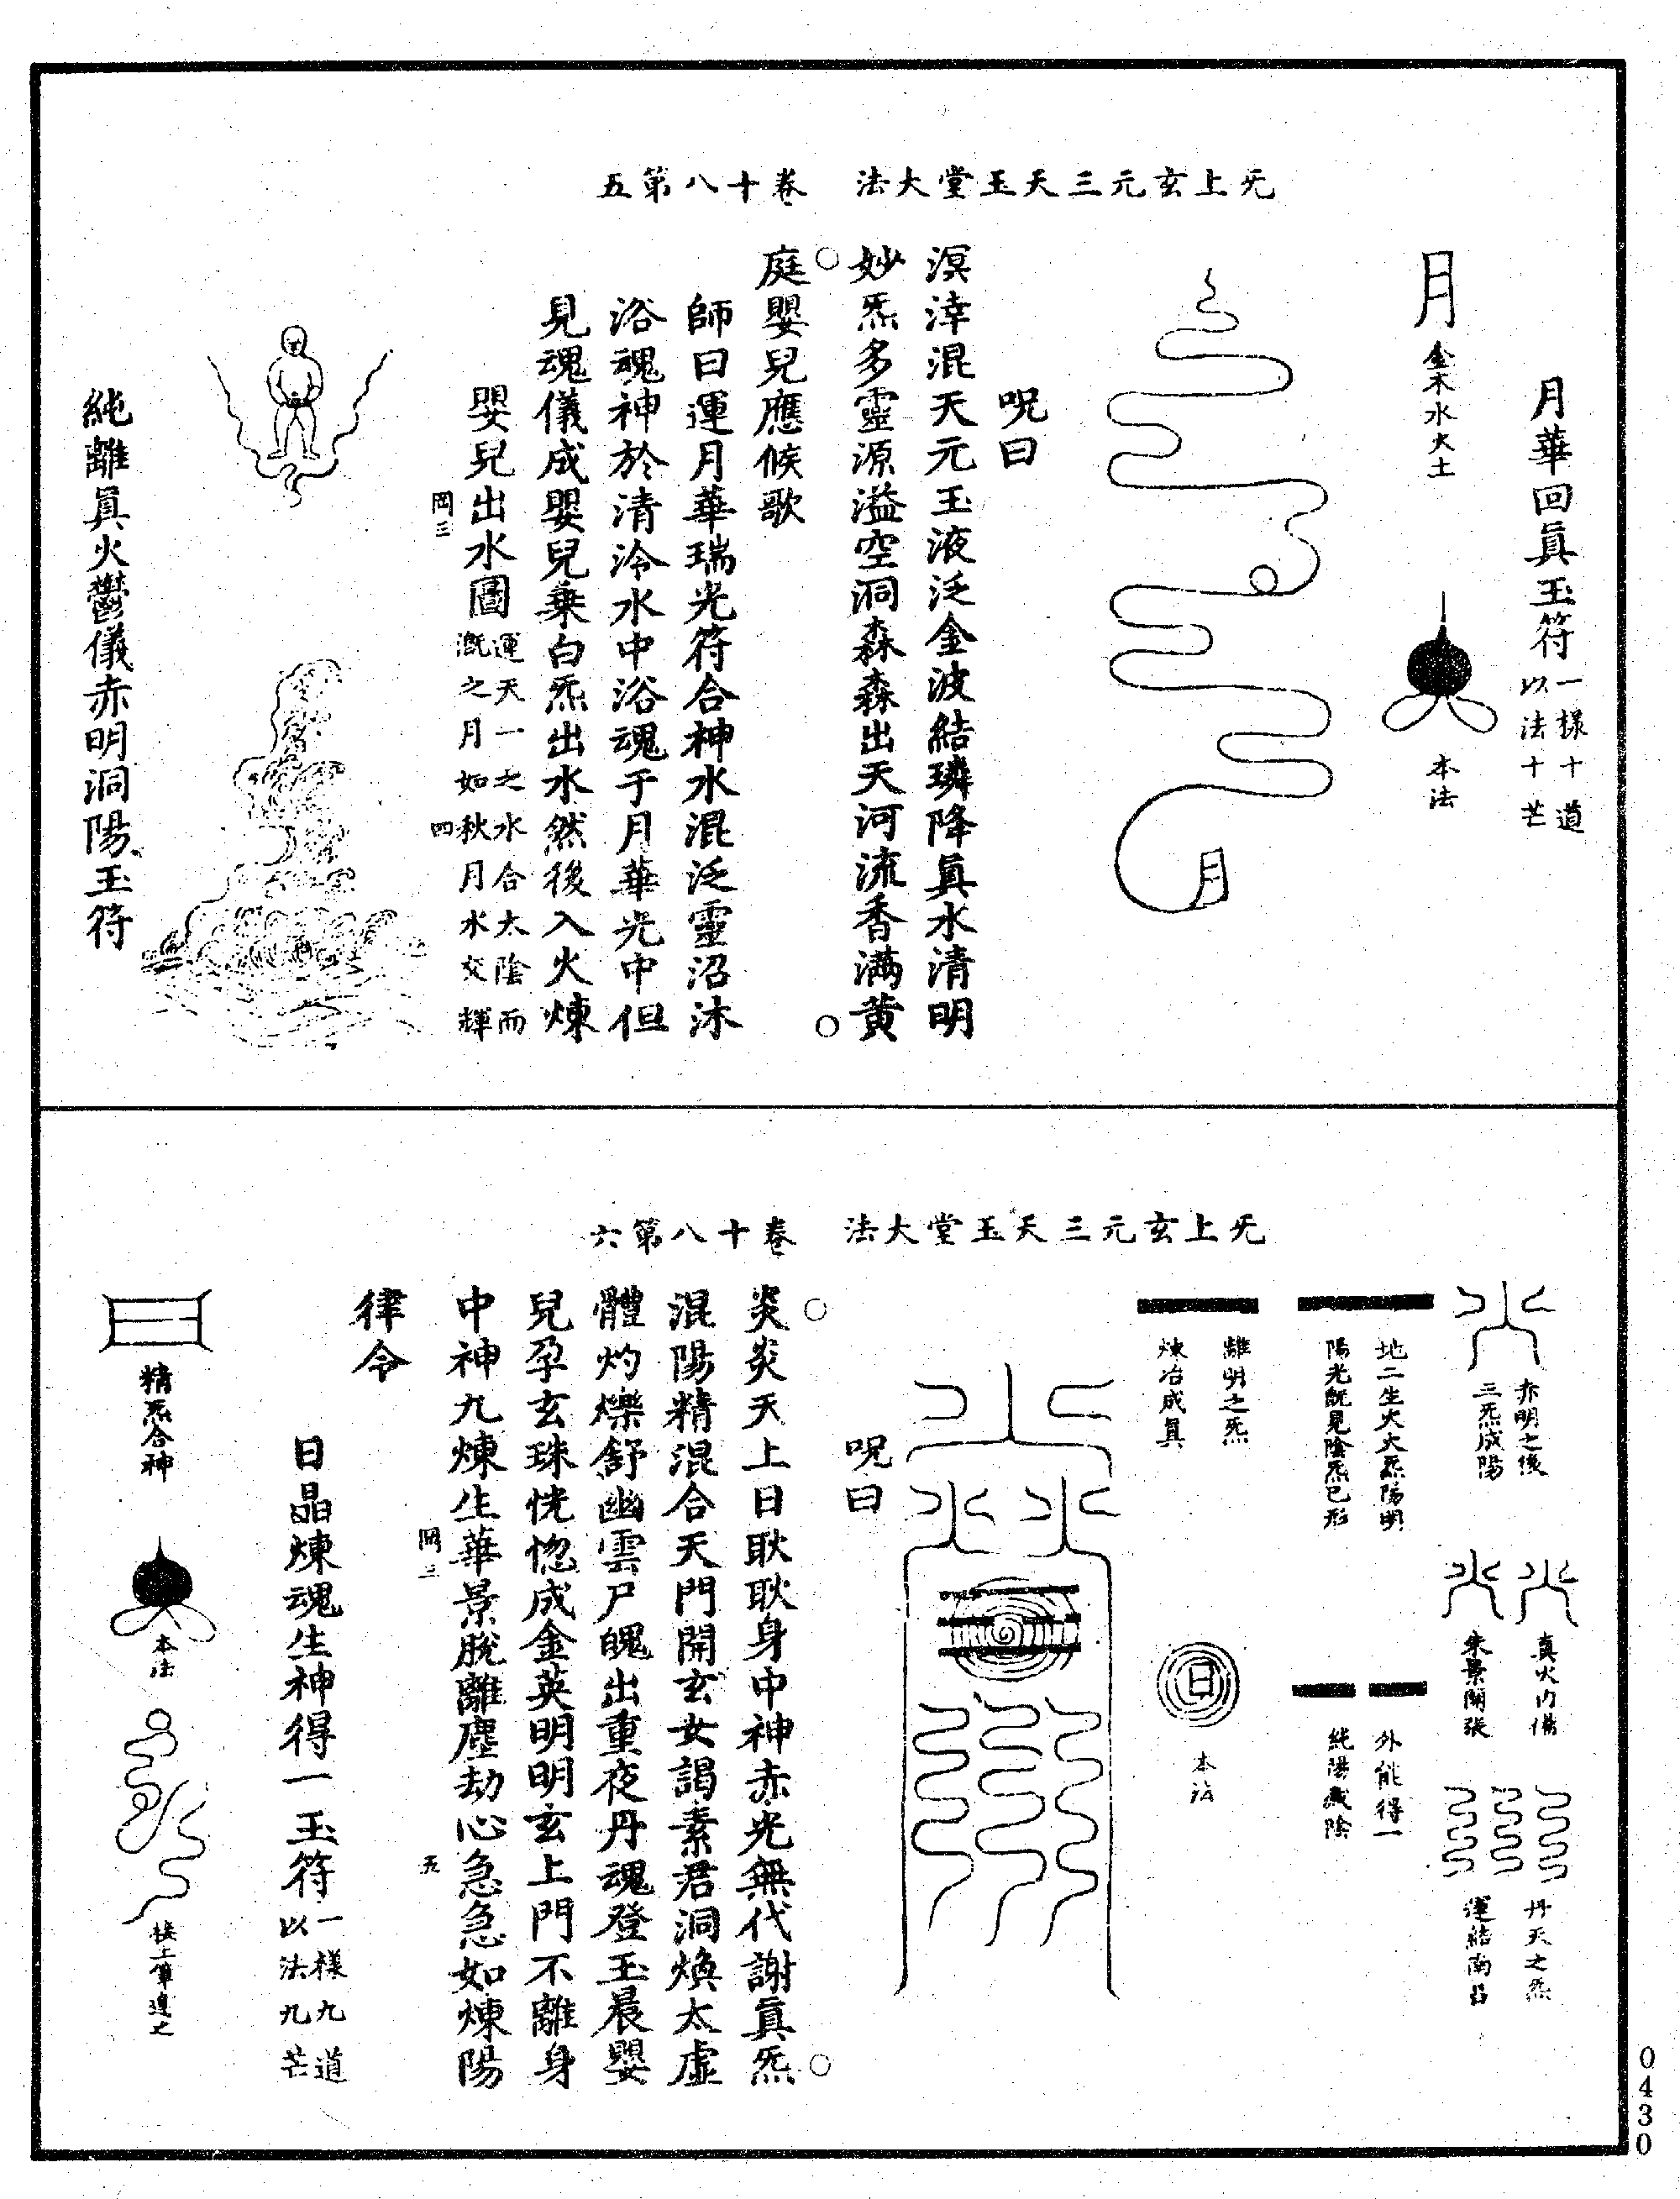 旡上玄元三天玉堂大法　卷十八第五
月華回眞玉符一樣十道以法十芒
月
金木水火土
本法
月
呪曰
溟涬混天元玉液泛金波結璘降眞水清明
妙炁多靈源溢空洞森森出天河流香滿黃
庭嬰兒應候歌
師曰運月華瑞光符合神水混泛靈沼沐
浴魂神於清泠水中浴魂于月華光中但
見魂儀成嬰兒乗白炁出水然後入火煉
嬰兒出水圖運天一之水合太陰而漑之月如秋月水交輝
岡三
四
純離眞火鬱儀赤明洞陽玉符
旡上玄元三天玉堂大法　卷十八第六
赤明之後三炁成陽
真火内備
朱景開張
丹天之炁運結南昌
地二生火大炁陽明
陽光旣見陰炁已形
外能得一
純陽藏陰
離明之炁
煉冶成真
日
本法
呪曰
炎炎天上日耿耿身中神赤光無代謝眞炁
混陽精混合天門開玄女謁素君洞煥太虛
體灼爍舒幽雲尸魄出重夜丹魂登玉晨嬰
兒孕玄珠恍惚成金英明明玄上門不離身
中神九煉生華景脫離塵劫心急急如煉陽
岡三
五
律令
日晶煉魂生神得一玉符一樣九道以法九芒
精炁合神
本法
接上筆遶之
0430